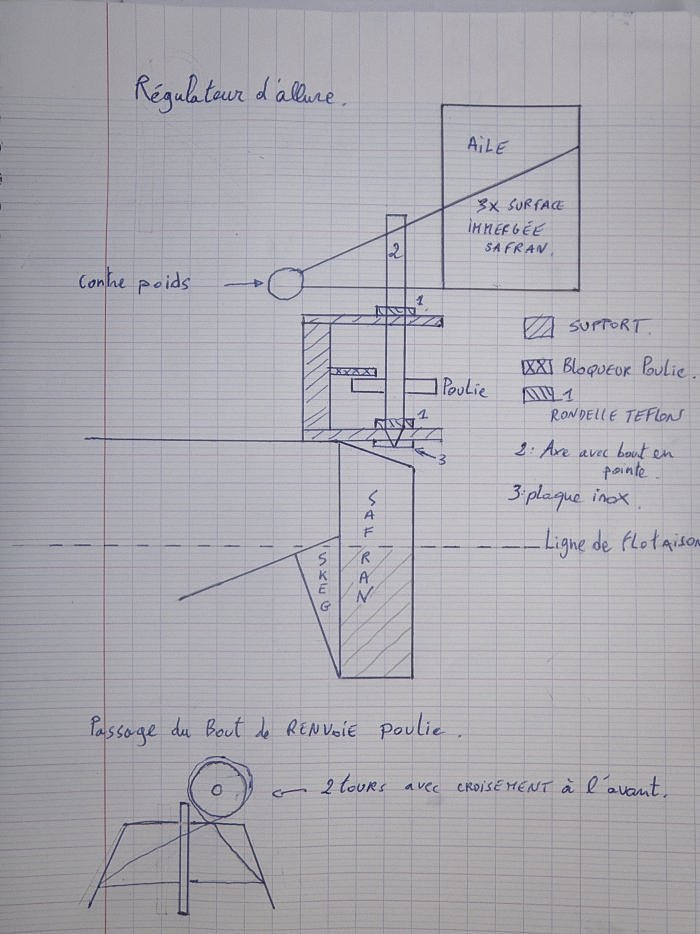 Régulateur d'allure.
AiLE
3x SURFACE
iMMERGÉE
SAFRAN.
2
Contre poids
1
SUPPORT.
Bloqueur Poulie.
Poulie
1
RONDELLE TEFLON
1
2: Axe avec bout en
pointe.
3
3:plaque inox.
SAFRAN
Ligne de FlotAiSON
SKEG
Passage du Bout de RENVoiE poulie.
2 tours avec CROISEMENT à l'avant.